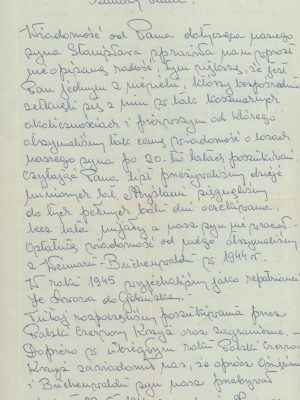 Szanowny Panie!
Wiadomość od Pana dotycząca naszego
syna Stanisława sprawiła nam wprost
nie opisaną radość, tym większą, że jest
Pan jednym z niewielu, którzy bezpośrednio
zetknęli się z nim w tak koszmarnych
okolicznościach i pierwszym od którego
otrzymaliśmy tak cenną wiadomość o losach
naszego syna po 20-tu latach poszukiwań
Czytając Pana list przeżywaliśmy dzieje
minionych lat. Myślami sięgnęliśmy
do tych pełnych bólu dni oczekiwania,
lecz lata mijały a nasz syn nie wracał.
Ostatnią wiadomość od niego otrzymaliśmy
z Weimaru-Buchenwaldu w 1944 r.
W roku 1945 przyjechaliśmy jako repatrianci
ze Lwowa do Gdańska.
Tutaj rozpoczęliśmy poszukiwania przez
Polski Czerwony Krzyż oraz zagraniczne. —
Dopiero w ubiegłym roku Polski Czerwony
Krzyż zawiadomił nas, że oprócz Oświęcimia
i Buchenwaldu syn nasz przebywał